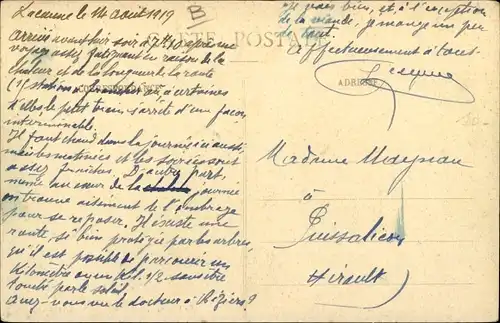 Lacaune le 14 août 1919
CARTE POSTALE
CORRESPONDANCE
ADRESSE
Arrivé avant hier soir à 7h30 après un
voyage assez fatiguant en raison de la
chaleur et de la longueur de la route
où à certaines
le petit train s'arrête d'une façon
interminable.
Il fait chaud dans la journée ici aussi,
mais les matinées et les soirées sont
assez fraîches. D'autre part,
même au cœur de la journée
on trouve aisément de l'ombrage
pour se reposer. Il existe une
route, si bien protégée par les arbres,
qu'il est possible de parcourir un
kilomètre ou un k. 1/2 sans être
touché par le soleil.
Avez-vous vu le docteur à Béziers?
Je vais bien, et, à l'exception
de la viande, je mange un peu
de tout.
Affectueusement à tous.
Madame Maynau
à
Puissalicon
Hérault